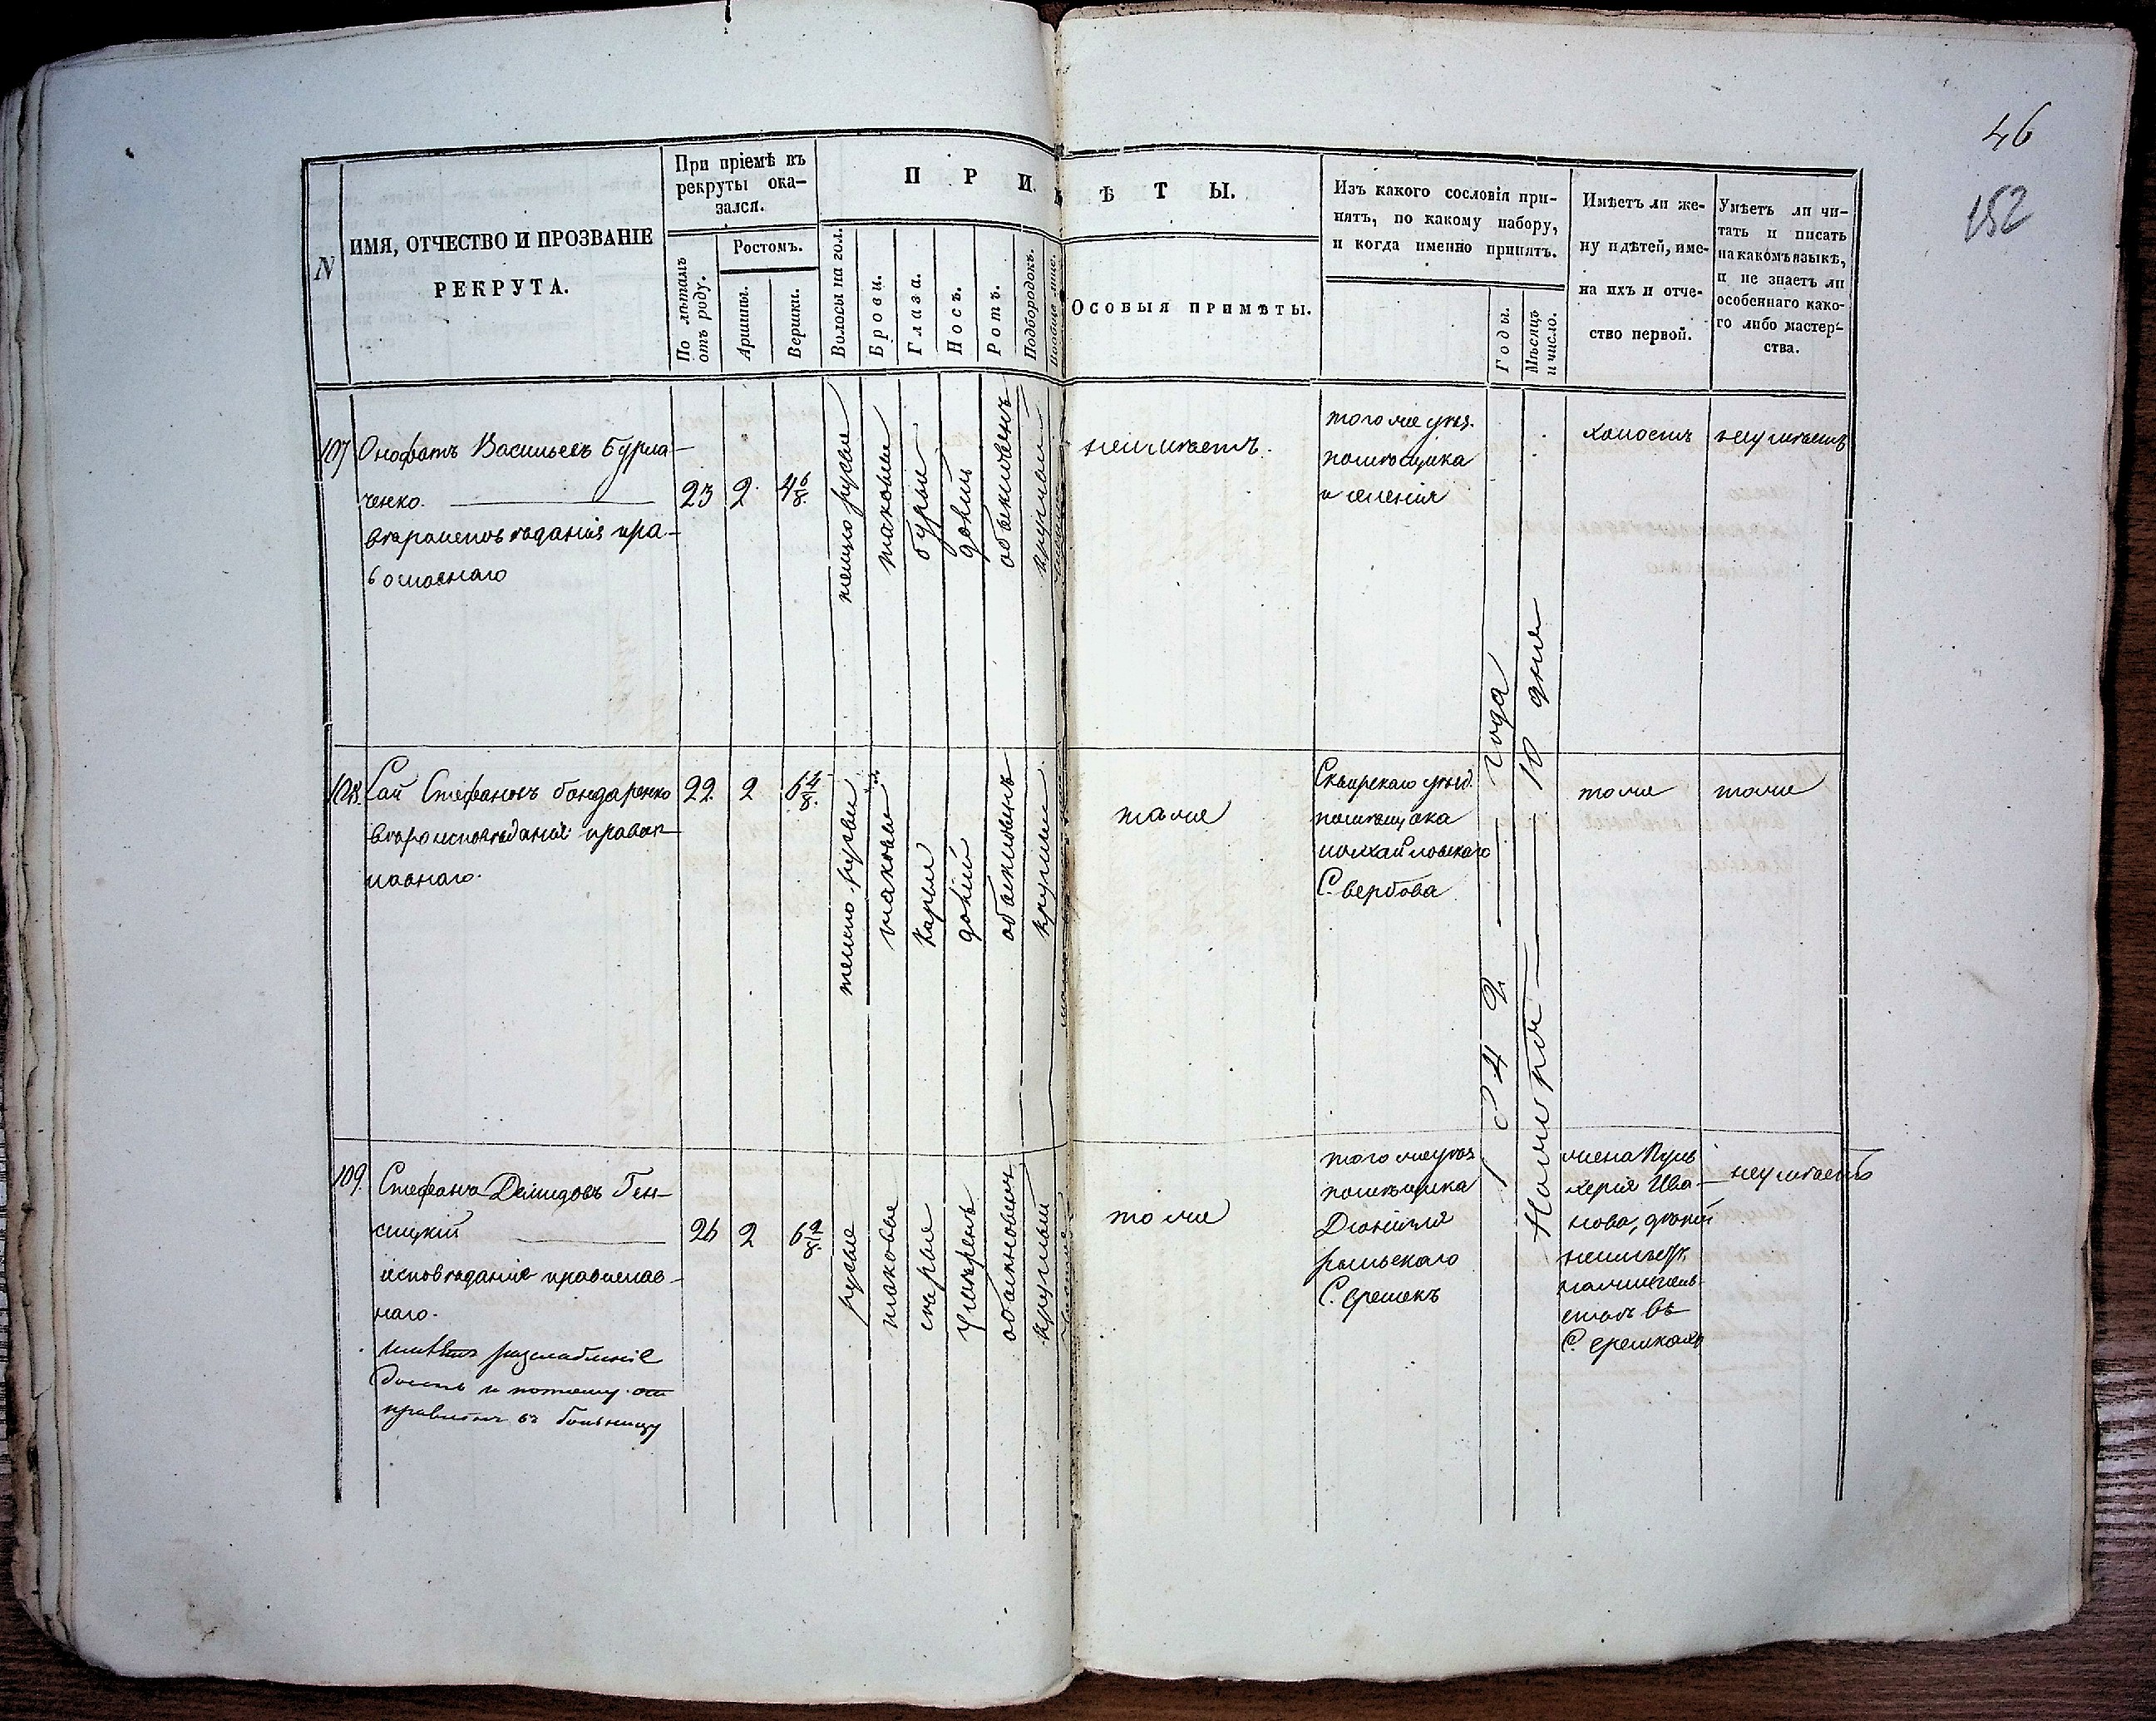 46
152
N
ИМЯ, ОТЧЕСТВО И ПРОЗВАНІЕ
РЕКРУТА.
При пріемѣ въ
рекруты ока-
зался.
По лѣтамъ
отъ роду.
Ростомъ.
Аршины.
Вершки.
П Р И М Ѣ Т Ы.
Волосы на гол.
Брови.
Глаза.
Носъ.
Ротъ.
Подбородокъ.
Вообще лице.
ОСОБЫЯ ПРИМѢТЫ.
Изъ какого сословія при-
нятъ, по какому набору,
и когда именно принятъ.
Годы.
Мѣсяцъ
и число.
Имѣетъ ли же-
ну и дѣтей, име-
на ихъ и отче-
ство первой.
Умѣетъ ли чи-
тать и писать
на какомъ языкѣ,
и не знаетъ ли
особеннаго како-
го либо мастер-
ства.
107
Онофатъ Васильевъ Бурла-
ченко.
вѣроисповѣданія пра-
вославнаго
23
2
4 6/8
темнорусые
таковые
бурые
долгій
обыкновенъ
круглый
неимѣетъ.
того же уѣз.
помѣщика
и селенія
холостъ
неумѣетъ
108.
Сай Стефановъ Бондаренко
вѣроисповѣданія правос-
лавнаго.
22
2
6 4/8
темнорусые
таковые
карые
долгій
обыкновенъ
круглый
тоже
Сквирскаго уѣзд.
помѣщика
Михайловскаго
С. Вербова
тоже
тоже
1842 года
Ноября 10 дня
109.
Стефанъ Демидовъ Ген-
сицкій
исповѣданія православ-
наго.
имѣетъ разслабленіе
и потому от
правленъ въ больницу
26
2
6 2/8
русые
таковые
серые
умѣренъ
обыкновенъ
круглый
тоже
того же уѣз
помѣщика
Даніила
рыльскаго
С. Ерчекъ
жена Пуль
херія Ива-
нова, дѣтей
неимѣетъ
жительствомъ въ
С. Ерчикахъ
неумѣетъ